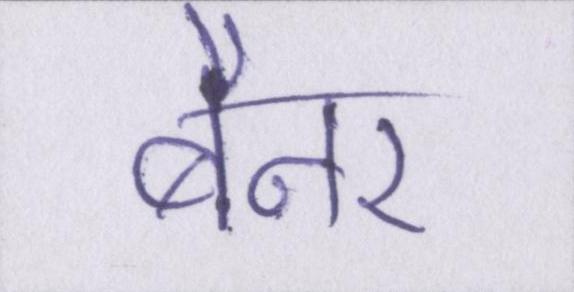 बैनर